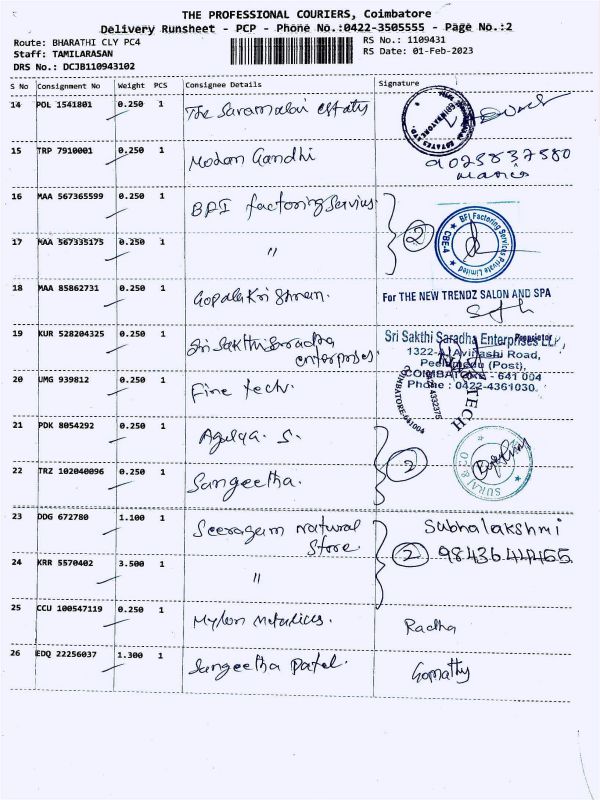 THE PROFESSIONAL COURIERS, Coimbatore
Delivery Runsheet - PCP - Phone No.:0422-3505555 - Page No.:2
Route: BHARATHI CLY PC4
RS No.: 1109431
Staff: TAMILARASAN
RS Date: 01-Feb-2023
DRS No.: DCJB110943102
S No Consignment No Weight PCS Consignee Details Signature
14 POL 1541801 0.250 1 The Saramalai estates
COIMBATORE
15 TRP 7910001 0.250 1 Mohan Gandhi
16 MAA 567365599 0.250 1 BFI factoring Servius 2
BFI Factoring Services Private Limited CBE-4
17 MAA 567335175 0.250 1 "
18 MAA 85862731 0.250 1 Gopala Kri Shnan. For THE NEW TRENDZ SALON AND SPA
Proprietor
19 KUR 528204325 0.250 1 Sri Sakthi Saradha Sri Sakthi Saradha Enterprises LLP,
enterprises. 1322-A, Avinashi Road,
Peelamedu (Post),
COIMBATORE - 641 004
Phone : 0422-4361030.
20 UMG 939812 0.250 1 Fine tech.
COIMBATORE-641004
21 PDK 8054292 0.250 1 Agalya. S. 2
SURAJ
22 TRZ 102040096 0.250 1 Sangeetha.
23 DDG 672780 1.100 1 Seeragam natural Subhalakshmi
Store. 2
24 KRR 5570402 3.500 1 "
25 CCU 100547119 0.250 1 Mylon Metallics. Radha
26 EDQ 22256037 1.300 1 Sangeetha Patel. Gomathy